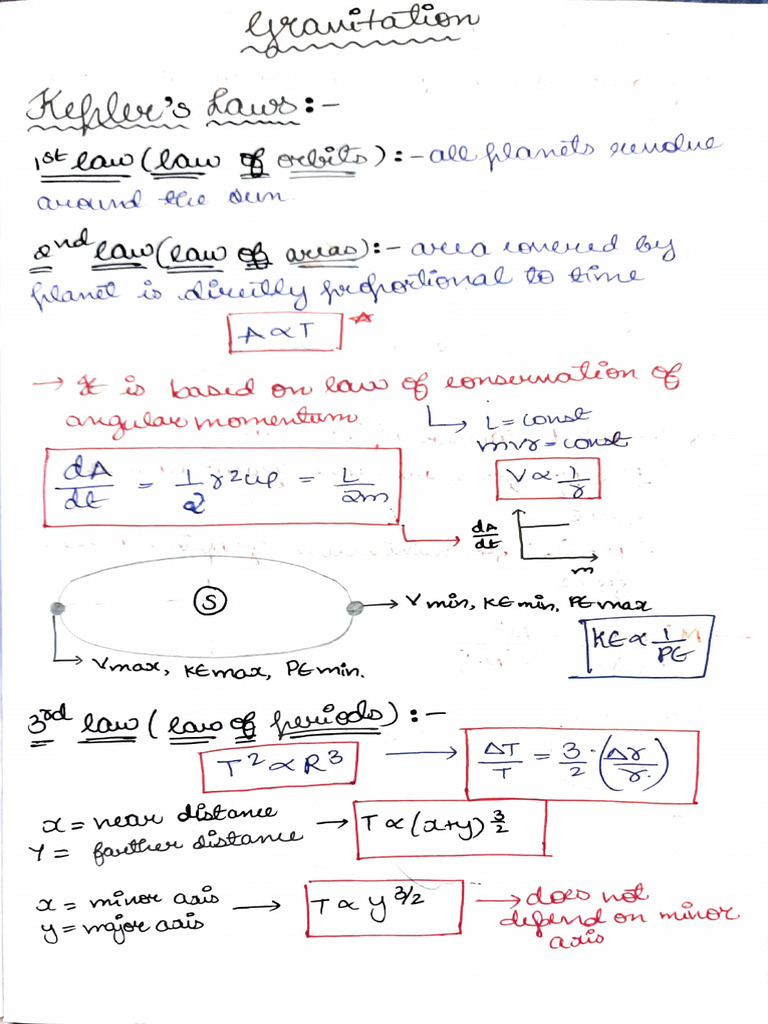 Gravitation
Kepler's Laws :-
1st law (law of orbits) :- all planets revolve
around the sun.
2nd law (law of areas) :- area covered by
planet is directly proportional to time
A ∝ T
→ It is based on law of conservation of
angular momentum
L = const
mvr = const
V ∝ 1/r
dA/dt = 1/2 r²ω = L/2m
dA/dt
m
S
Vmin, KEmin, PEmax
KE ∝ 1/PE
Vmax, KEmax, PEmin.
3rd law (law of periods) :-
T² ∝ R³ → ΔT/T = 3/2 · (Δr/r)
x = near distance
Y = farther distance → T ∝ (x+y)^3/2
x = minor axis
y = major axis → T ∝ y^3/2 → does not
depend on minor
axis